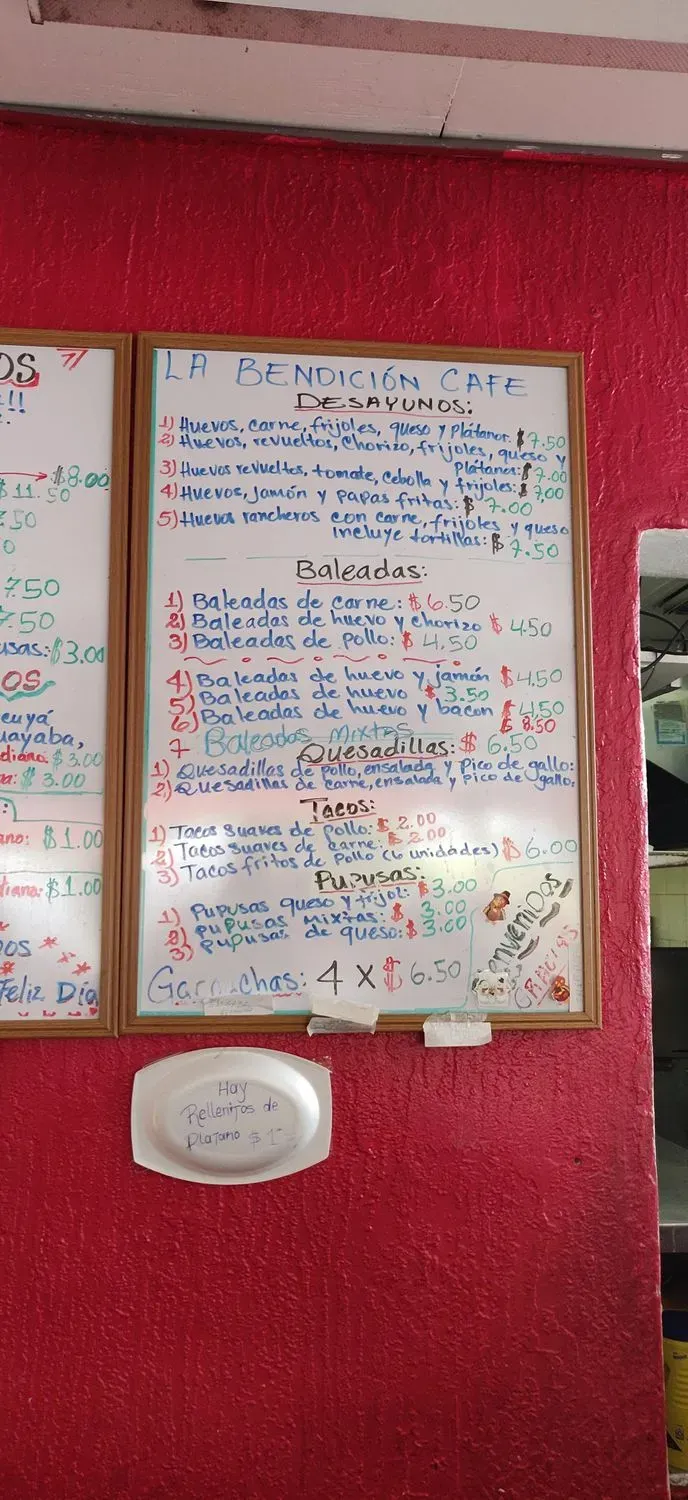 OS
!!
$8.00
$11.50
7.50
7.50
usas: $3.00
OS
cuyá
uayaba,
diana: $3.00
na: $3.00
ano: $1.00
diana: $1.00
Feliz Día
LA BENDICIÓN CAFE
DESAYUNOS:
1) Huevos, carne, frijoles, queso y plátanos: $7.50
2) Huevos, revueltos, chorizo, frijoles, queso y
plátanos: $7.00
3) Huevos revueltos, tomate, cebolla y frijoles: $7,00
4) Huevos, jamón y papas fritas: $7.00
5) Huevos rancheros con carne, frijoles y queso
incluye tortillas: $7.50
Baleadas:
1) Baleadas de carne: $6.50
2) Baleadas de huevo y chorizo $4.50
3) Baleadas de pollo: $4.50
4) Baleadas de huevo y jamón $4,50
5) Baleadas de huevo $3.50
6) Baleadas de huevo y bacon $4,50
$8.50
7 Baleadas Mixtas
Quesadillas: $6.50
1) Quesadillas de pollo, ensalada y pico de gallo:
2) Quesadillas de carne, ensalada y Pico de gallo:
Tacos:
1) Tacos suaves de pollo: $2.00
2) Tacos suaves de carne: $2.00
3) Tacos fritos de Pollo (6 unidades) $6.00
Pupusas:
1) Pupusas queso y frijol: $3.00
2) pupusas mixtas: $3.00
3) pupusas de queso: $3.00
Bienvenidos
GRACIAS
Garnachas: 4 X $6.50
Hay
Rellenitos de
Platano $1